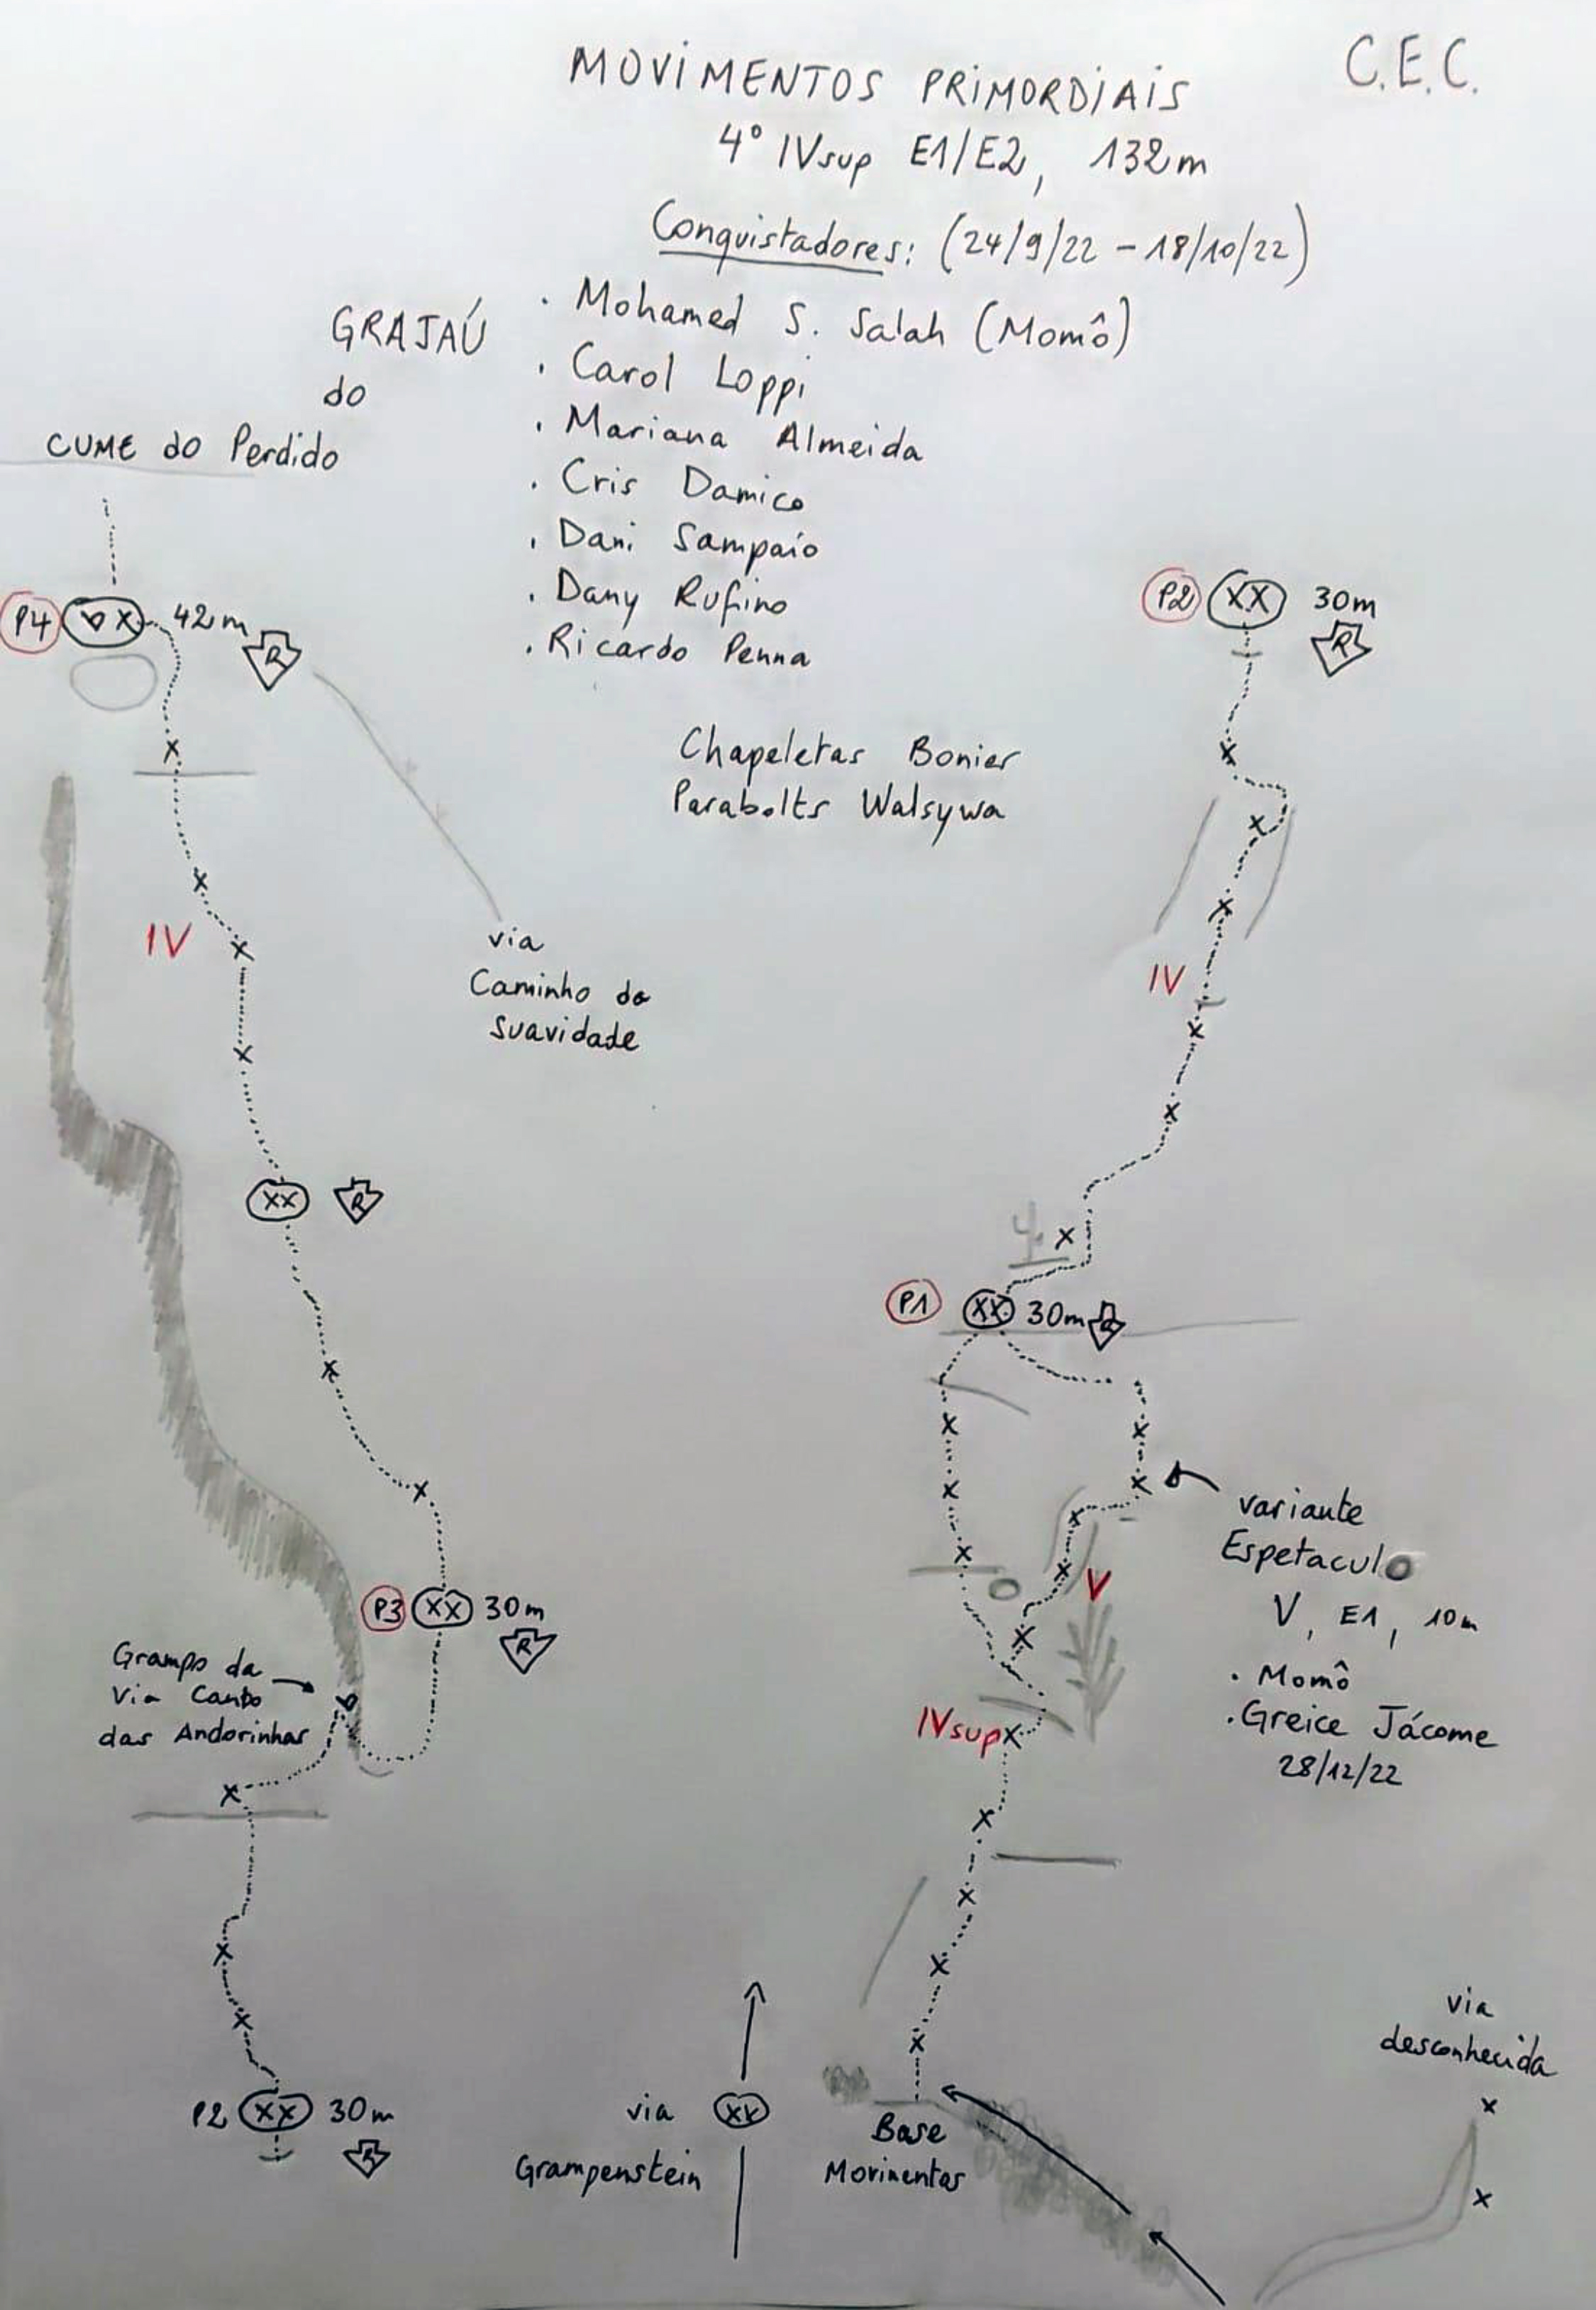 MOVIMENTOS PRIMORDIAIS
C.E.C.
4º IVsup E1/E2, 132m
Conquistadores: (24/9/22 - 18/10/22)
. Mohamed S. Salah (Momô)
. Carol Loppi
. Mariana Almeida
. Cris Damico
. Dani Sampaio
. Dany Rufino
. Ricardo Penna
GRAJAÚ
do
CUME do Perdido
P4
42m
R
P2
XX
30m
R
Chapeletas Bonier
Parabolts Walsywa
IV
via
Caminho da
Suavidade
IV
XX
R
P1
XX
30m
R
variante
Espetaculo
V, E1, 10m
. Momô
. Greice Jácome
28/12/22
V
IVsup
P3
XX
30m
R
Grampo da
Via Canto
das Andorinhas
P2
XX
30m
R
via
XX
Grampenstein
Base
Movimentos
via
desconhecida